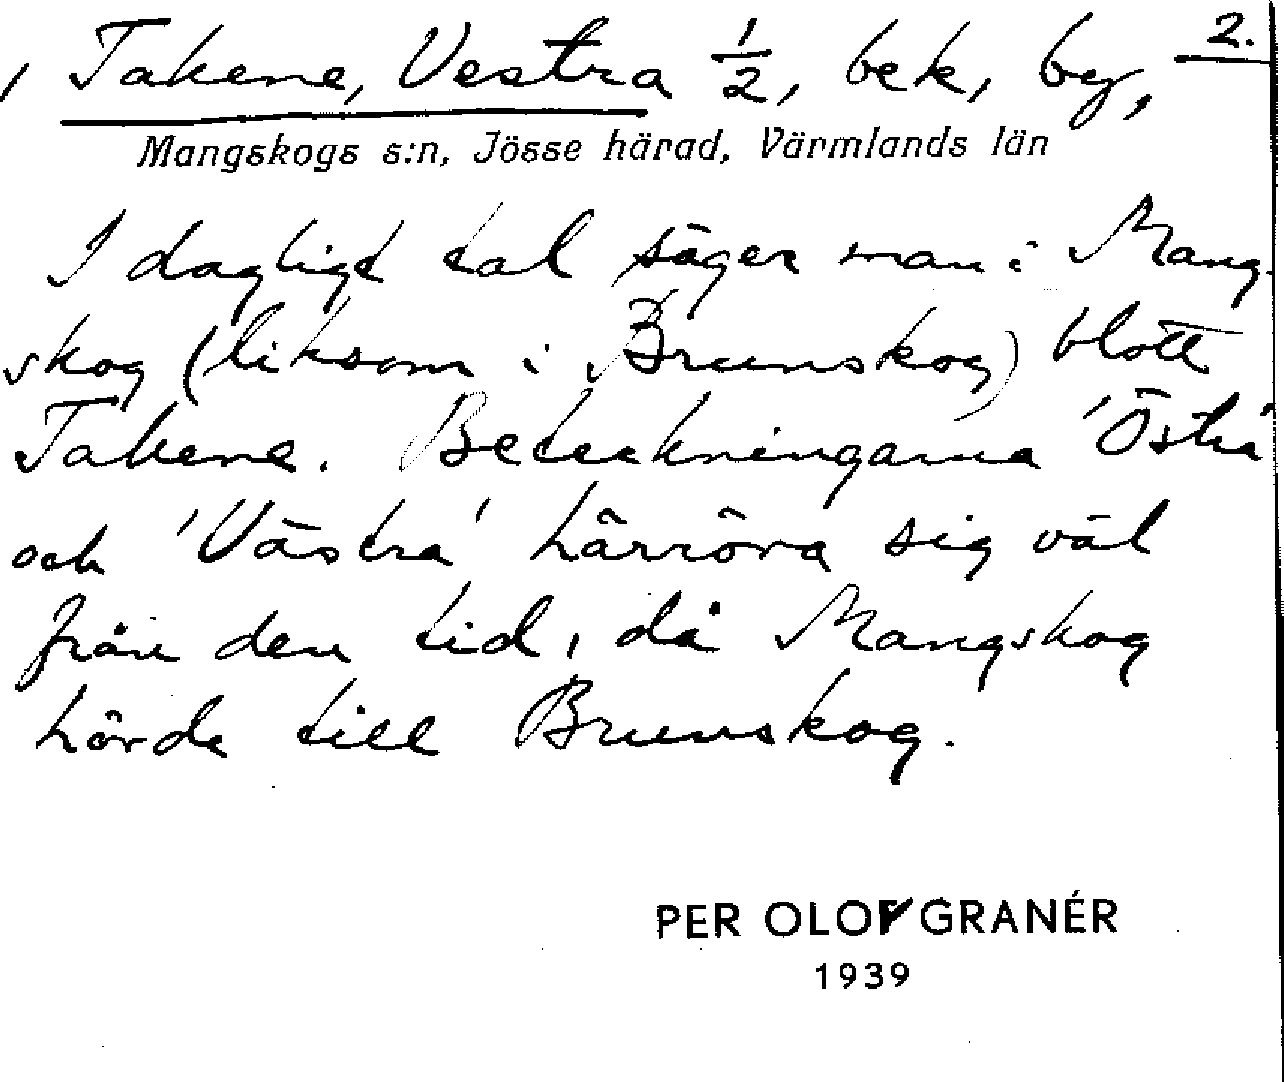 , Takene, Vestra 1/2, bek, by, 2.
Mangskogs s:n, Jösse härad, Värmlands län
I dagligt tal säger man i Mang-
skog (liksom i Brunskog) blott
Takene. Beteckningarna 'Östra'
och 'Västra' härröra sig väl
från den tid, då Mangskog
hörde till Brunskog.
PER OLOF GRANÉR
1939